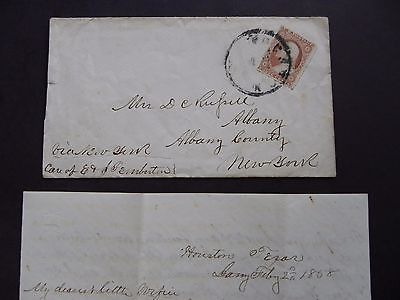 Mrs D C Russell
Albany
Albany County
New York
via New York
Care of E & J Pemberton
Houston Texas
2nd 1858
My dearest little Wifie